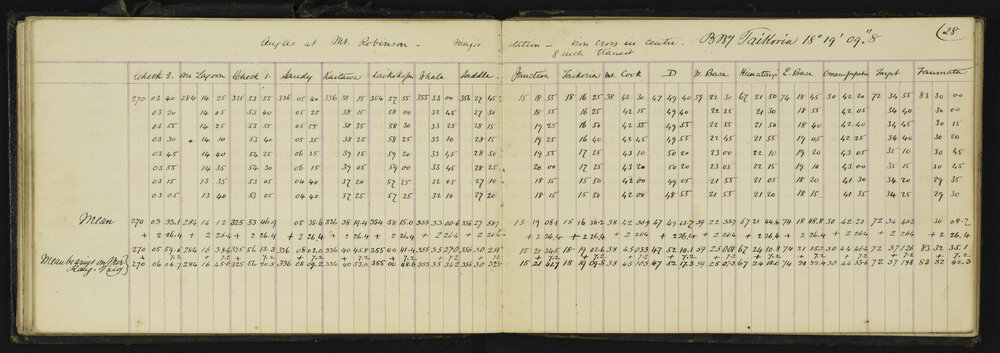 (28
Angles at Mt. Robinson - Major station - iron cross in centre. Bng Taikoria 18° 19' 09."8
8 inch transit
Check 2. Mt Lagoon Check 1. Sandy Kaitawa Whale Saddle Junction Taikoria Mt. Cook D W. Base Himatangi E. Base Target Faumata
270 03 40 284 14 25 325 53 55 336 05 40 336 38 15 354 57 55 355 33 00 356 27 45 15 18 55 18 16 25 38 42 30 47 49 40 59 22 30 67 21 50 74 18 45 30 42 20 72 34 55 83 30 00
03 20 14 05 53 40 05 25 38 15 58 00 32 45 27 30 18 55 16 25 42 15 49 40 22 25 21 30 18 55 42 05 34 40 30 00
03 55 14 25 53 55 05 55 38 35 58 30 33 25 28 15 19 25 16 50 42 55 49 55 22 55 21 50 18 40 42 40 34 45 30 15
03 30 14 10 53 40 05 35 38 25 58 25 33 10 28 15 19 25 16 40 42 45 49 55 22 45 21 55 19 05 42 25 34 40 30 20
03 45 14 40 54 25 06 35 39 15 59 20 33 45 28 30 19 55 17 25 43 10 50 20 23 00 22 10 19 20 43 05 35 10 30 45
03 55 14 35 54 30 06 15 39 05 59 00 33 45 28 25 20 00 17 25 43 20 50 20 23 05 22 15 19 10 43 00 35 15 30 45
03 15 13 35 53 05 04 40 37 20 57 25 32 05 27 10 18 15 15 50 42 00 49 05 21 55 21 05 18 20 41 30 34 20 29 35
03 05 13 40 53 05 04 40 37 25 57 25 32 10 27 20 18 15 15 50 42 00 48 55 21 55 21 20 18 20 41 35 34 25 29 30
Mean 270 03 33.1 284 14 12 325 53 46.9 05 35.6 336 38 19.4 354 58 15.0 355 33 00.6 356 27 15 19 08.1 18 16 38 42 47 49 59 22 67 21 44.4 74 18 48.8 30 42 20 72 34 30 08.7
+ 2 26.4 + 2 26.4 + 2 26.4 + 2 26.4 + 2 26.4 + 2 26.4 + 2 26.4 + 2 26.4 + 2 26.4 + 2 26.4 + 2 26.4 + 2 26.4 + 2 26.4 + 2 26.4 + 2 26.4
270 05 59.5 284 16 325 56 13.3 336 08 02.0 336 40 45.8 355 00 41.4 355 35 27.0 356 30 15 21 34.5 18 19 02.6 38 45 47 52 59 67 24 10.8 74 21 15.2 30 44 72 37 83 32 35.1
+ 7.2 + 7.2 + 7.2 + 7.2 + 7.2 + 7.2 + 7.2 + 7.2 + 7.2 + 7.2 + 7.2 + 7.2 + 7.2
Mean bearings on
270 06 06.7 284 16 325 56 20.5 336 08 09.2 336 40 53.0 355 00 48.6 355 35 34.2 356 30 15 21 41.7 18 19 09.8 38 45 47 52 59 67 24 18.0 74 21 22.4 30 44 72 37 19.8 83 32 42.3